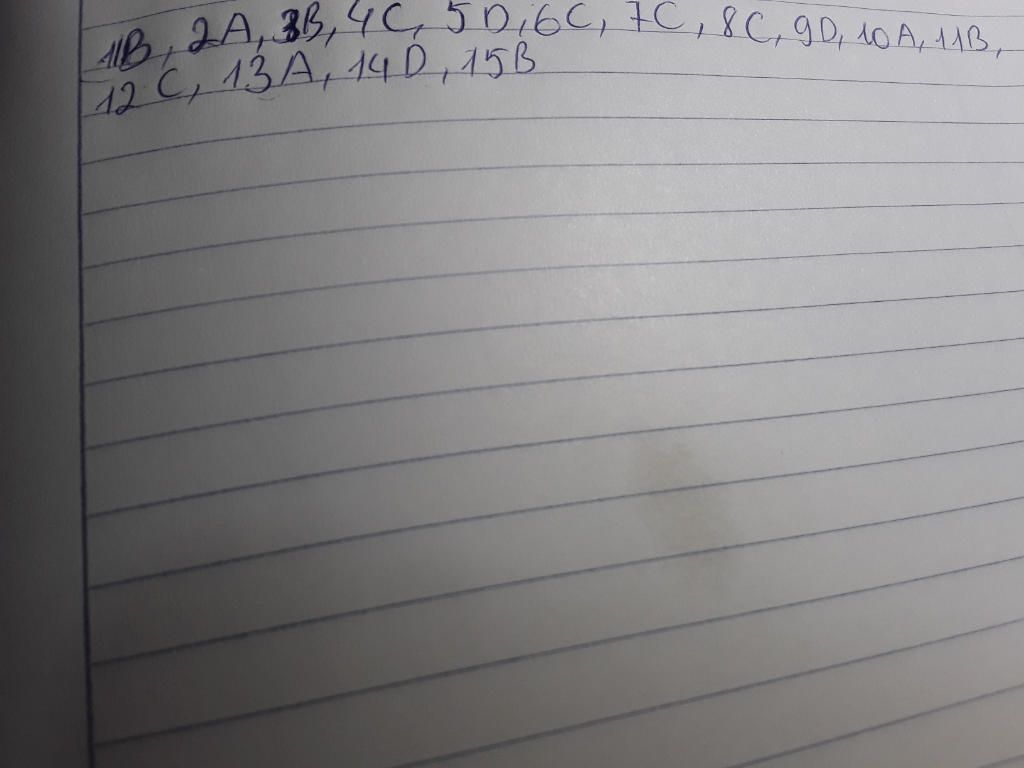 11B, 2A, 3B, 4C, 5D, 6C, 7C, 8C, 9D, 10A, 11B,
12C, 13A, 14D, 15B